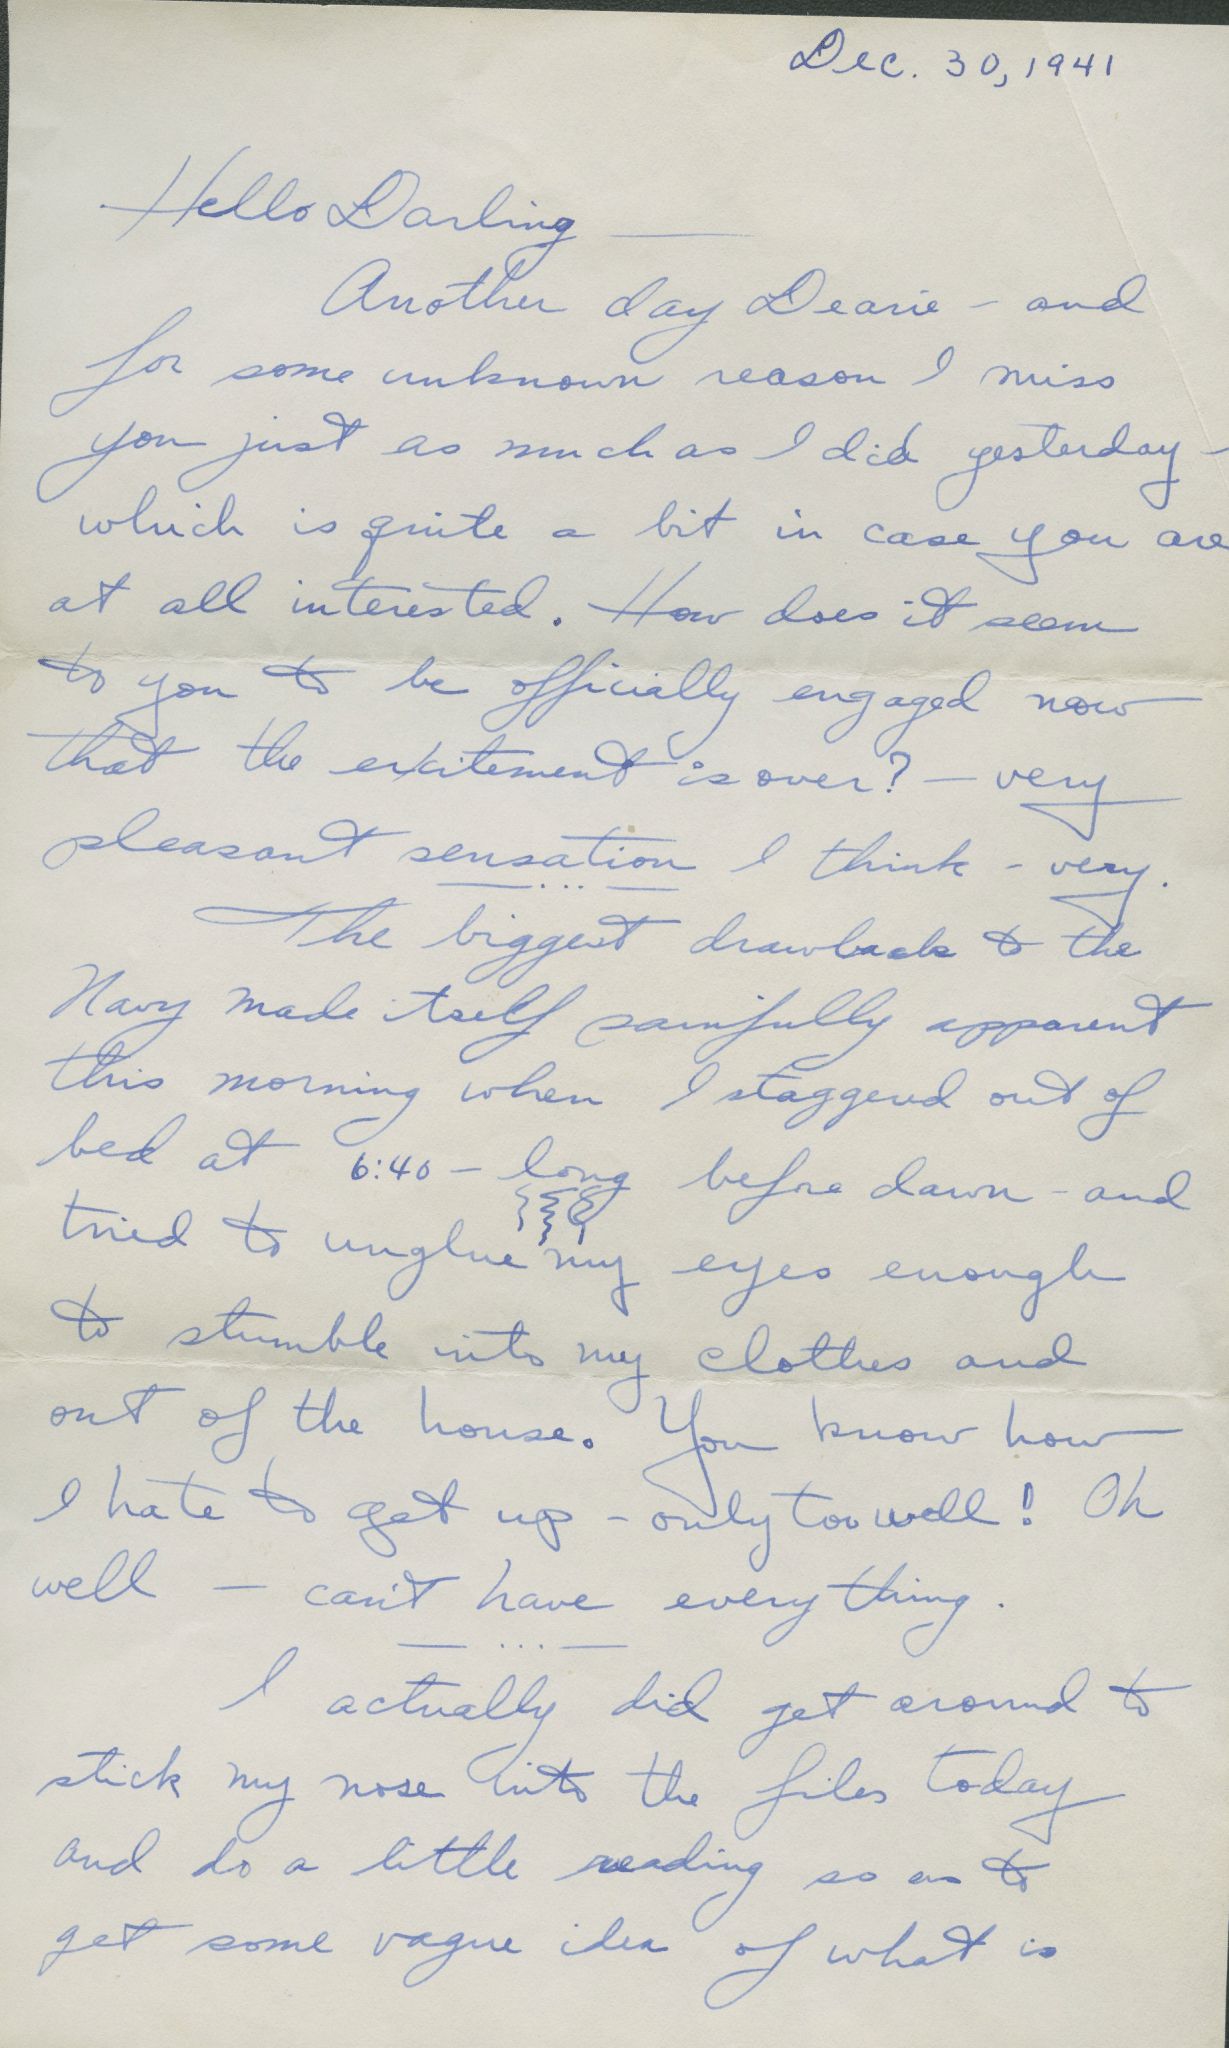 Dec. 30, 1941
Hello Darling —
Another day Dearie - and
for some unknown reason I miss
you just as much as I did yesterday -
which is quite a bit in case you are
at all interested. How does it seem
to you to be officially engaged now
that the excitement is over? - very
pleasant sensation I think - very.
— ... —
The biggest drawback to the
Navy made itself painfully apparent
this morning when I staggered out of
bed at 6:40 - long before dawn - and
tried to unglue my eyes enough
to stumble into my clothes and
out of the house. You know how
I hate to get up - only too well! Oh
well - can't have everything.
— ... —
I actually did get around to
stick my nose into the files today
and do a little reading so as to
get some vague idea of what is